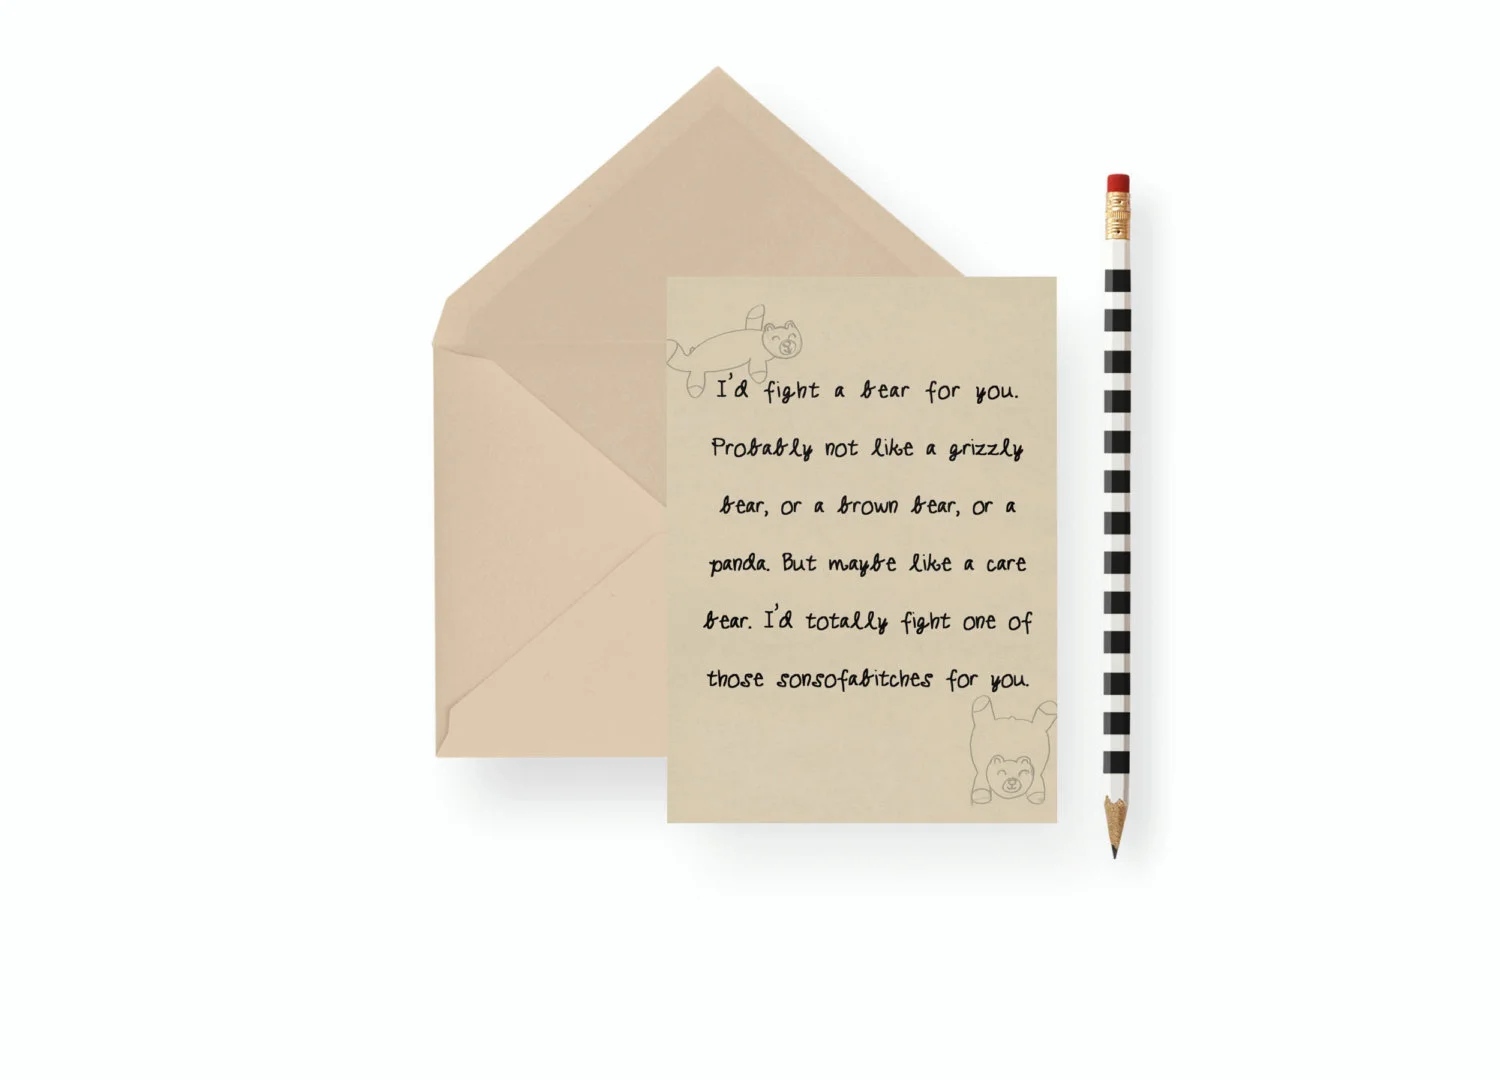 I'd fight a bear for you.
Probably not like a grizzly
bear, or a brown bear, or a
panda. But maybe like a care
bear. I'd totally fight one of
those sonsofabitches for you.